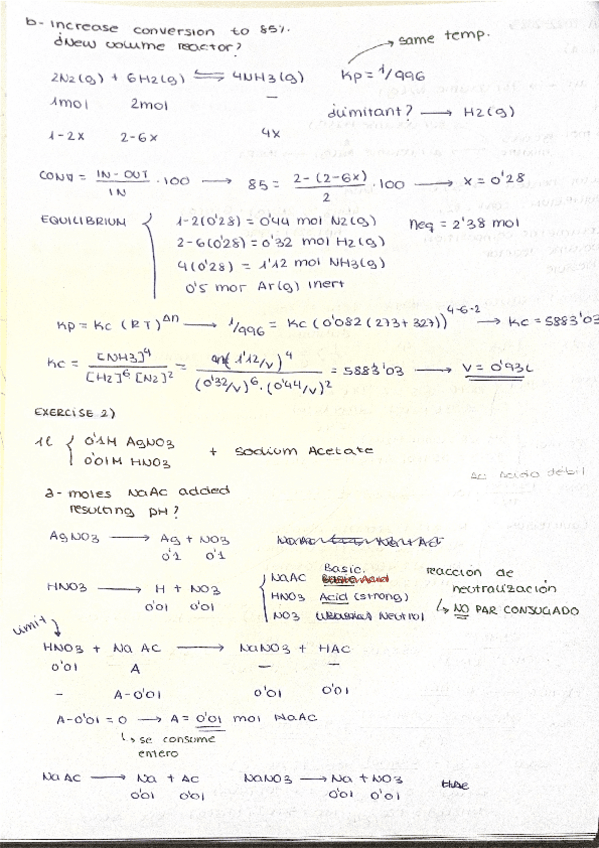 b- Increase conversion to 85%.
¿New volume reactor?
→ same temp.
2N2(g) + 6H2(g) ⇌ 4NH3(g) Kp = 1/996
1mol 2mol —
¿Limitant? → H2(g)
1-2x 2-6x 4x
CONV = IN-OUT/IN · 100 → 85 = 2-(2-6x)/2 · 100 → x = 0'28
EQUILIBRIUM { 1-2(0'28) = 0'44 mol N2(g) neq = 2'38 mol
2-6(0'28) = 0'32 mol H2(g)
4(0'28) = 1'12 mol NH3(g)
0'5 mol Ar(g) Inert
Kp = Kc (RT)^Δn → 1/996 = Kc (0'082 (273+327))^4-6-2 → Kc = 5883'03
Kc = [NH3]^4 / [H2]^6 [N2]^2 = (1'12/V)^4 / (0'32/V)^6 · (0'44/V)^2 = 5883'03 → V = 0'93L
EXERCISE 2)
1L { 0'1M AgNO3 + Sodium Acetate
0'01M HNO3
Ac: Acido débil
a- moles NaAc added
resulting pH?
AgNO3 → Ag + NO3
0'1 0'1
HNO3 → H + NO3
0'01 0'01
{ NaAc Basic.
HNO3 Acid (strong)
NO3 Neutral
reacción de
neutralización
↳ NO PAR CONJUGADO
Limit
HNO3 + NaAc → NaNO3 + HAc
0'01 A — —
— A-0'01 0'01 0'01
A-0'01 = 0 → A = 0'01 mol NaAc
↳ se consume
entero
NaAc → Na + Ac NaNO3 → Na + NO3
0'01 0'01 0'01 0'01